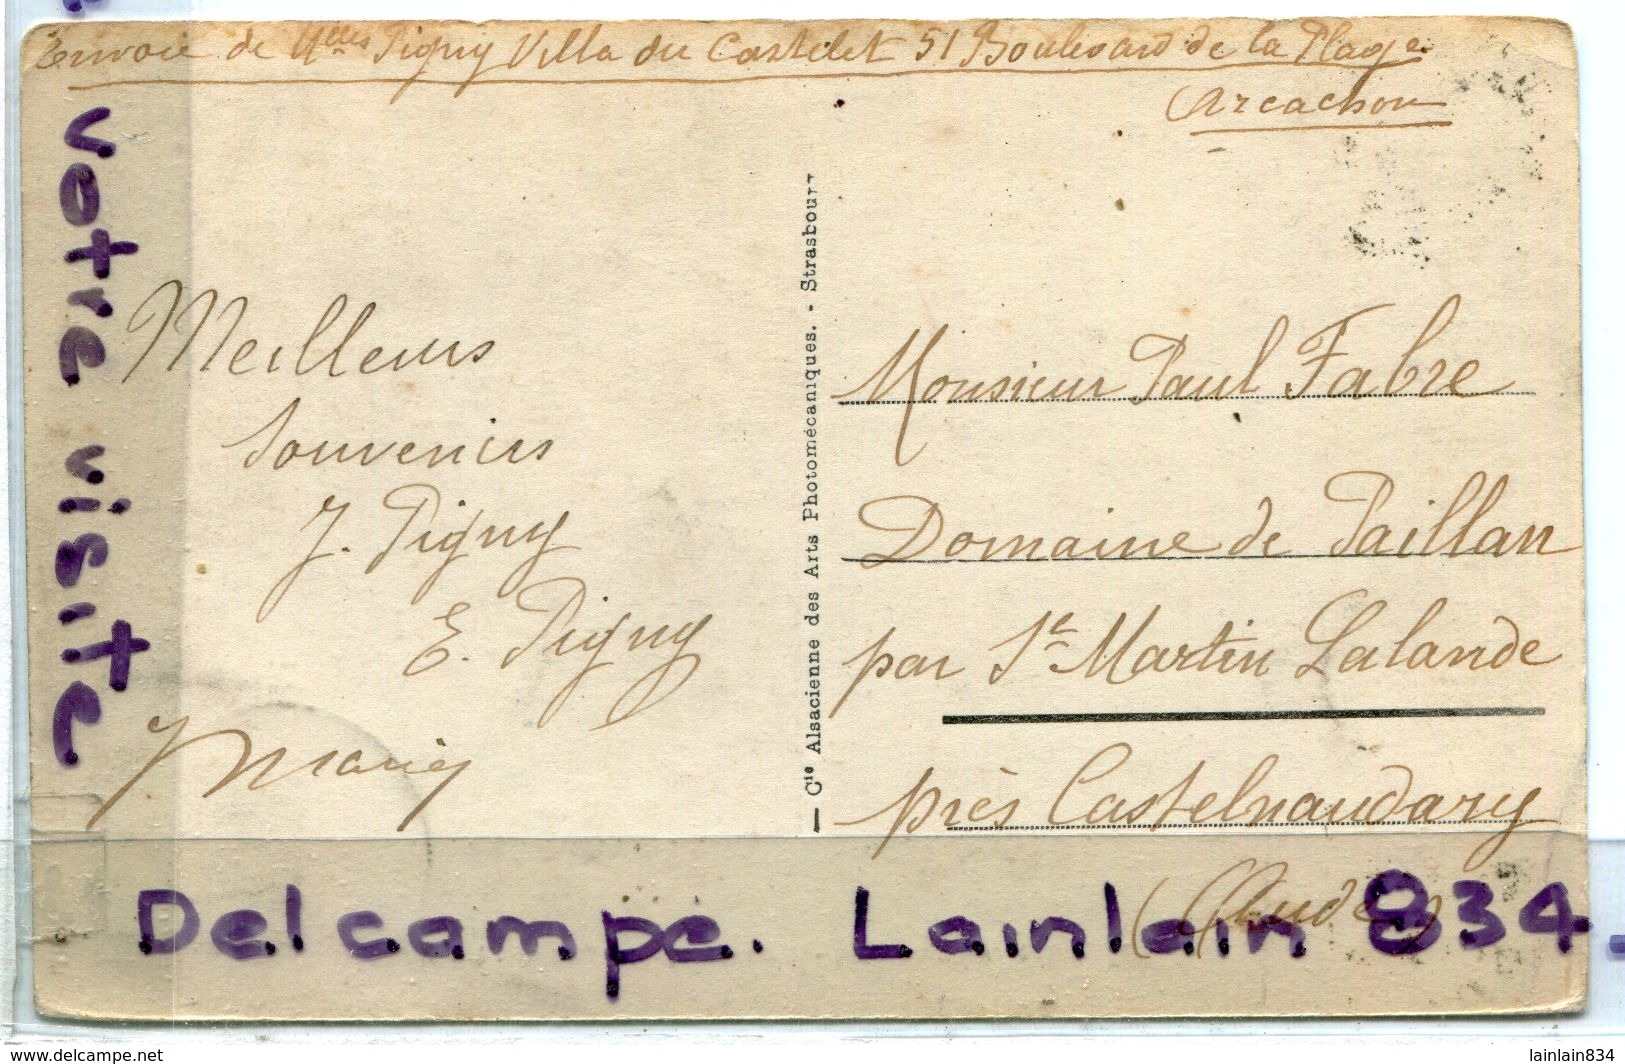 Envoie de Melles Pigny Villa du Castelet 51 Boulevard de la Plage
Arcachon
Meilleurs
Souvenirs
J. Pigny
E. Pigny
— Cie Alsacienne des Arts Photomécaniques. - Strasbourg
Monsieur Paul Fabre
Domaine de Paillan
par St Martin Lalande
près Castelnaudary
(Aude)
votre visite.
Delcampe. Lainlain 834.
www.delcampe.net
lainlain834